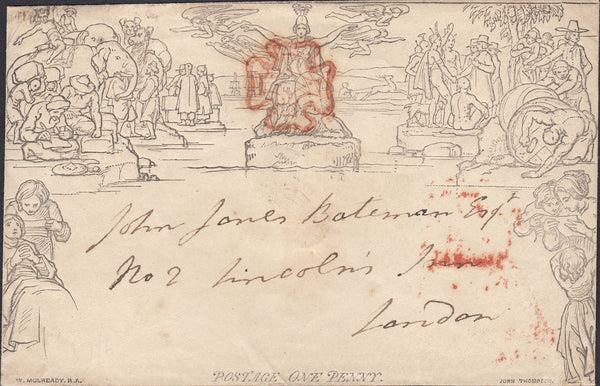 John Jones Bateman Esqr
No 2 Lincoln's Inn
London
POSTAGE ONE PENNY.
W. MULREADY, R.A.
JOHN THOMPSON